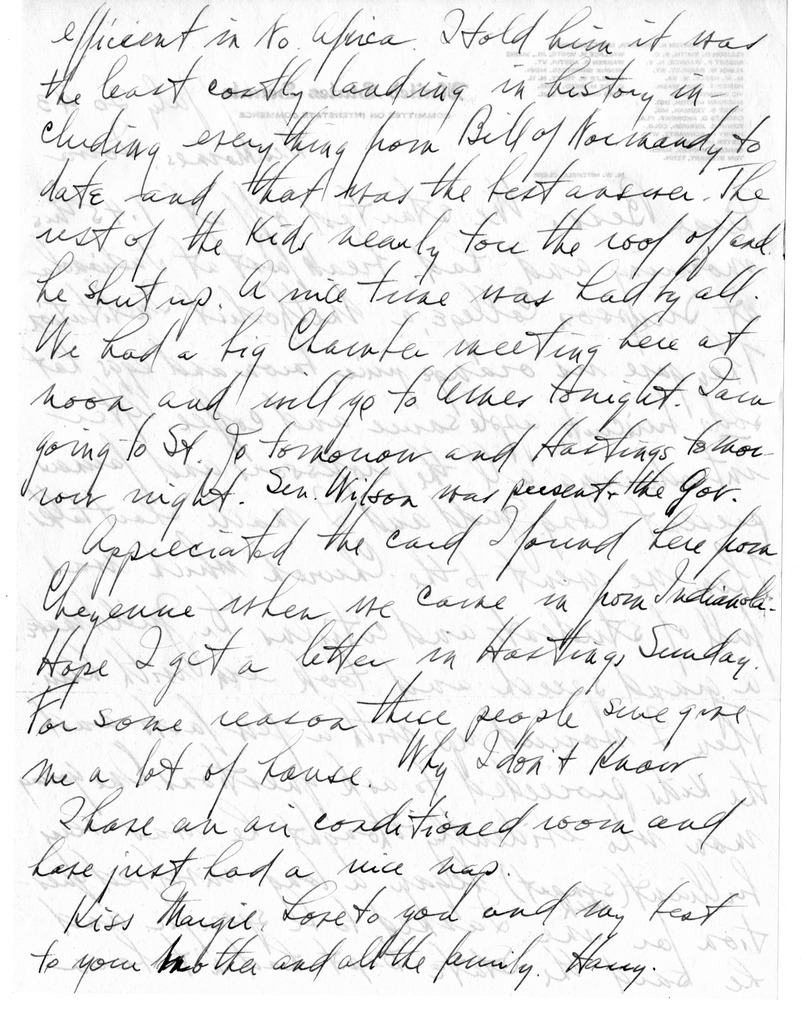 efficient in No. Africa. I told him it was
the least costly landing in history in-
cluding everything from Bill of Normandy to
date and that was the best answer. The
rest of the Kids nearly tore the roof off and
he shut up. A nice time was had by all.
We had a big Chamber meeting here at
noon and will go to Ames tonight. I am
going to St. Jo tomorrow and Hastings tomor-
row night. Sen. Wilson was present & the Gov.
Appreciated the card I found here from
Cheyenne when we came in from Indianola.
Hope I get a letter in Hastings Sunday.
For some reason these people sure give
me a lot of house. Why I don't Know
I have an air conditioned room and
have just had a nice nap.
Kiss Margie. Love to you and my best
to your mother and all the family. Harry.